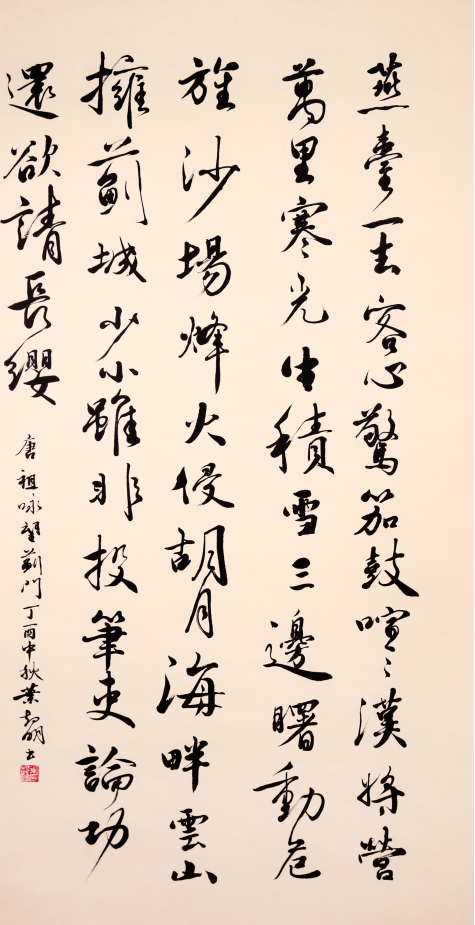 燕臺一去客心驚笳鼓喧〻漢將營
萬里寒光生積雪三邊曙動危
旌沙場烽火侵胡月海畔雲山
擁薊城少小雖非投筆吏論功
還欲請長纓
唐祖咏望薊門丁酉中秋葉明书